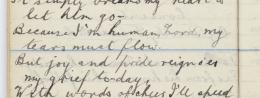 It simply breaks my heart to
let him go—
Because I'm human, Lord, my
tears must flow.
But joy and pride reign o'er
my grief today,
With words of cheer I'll speed